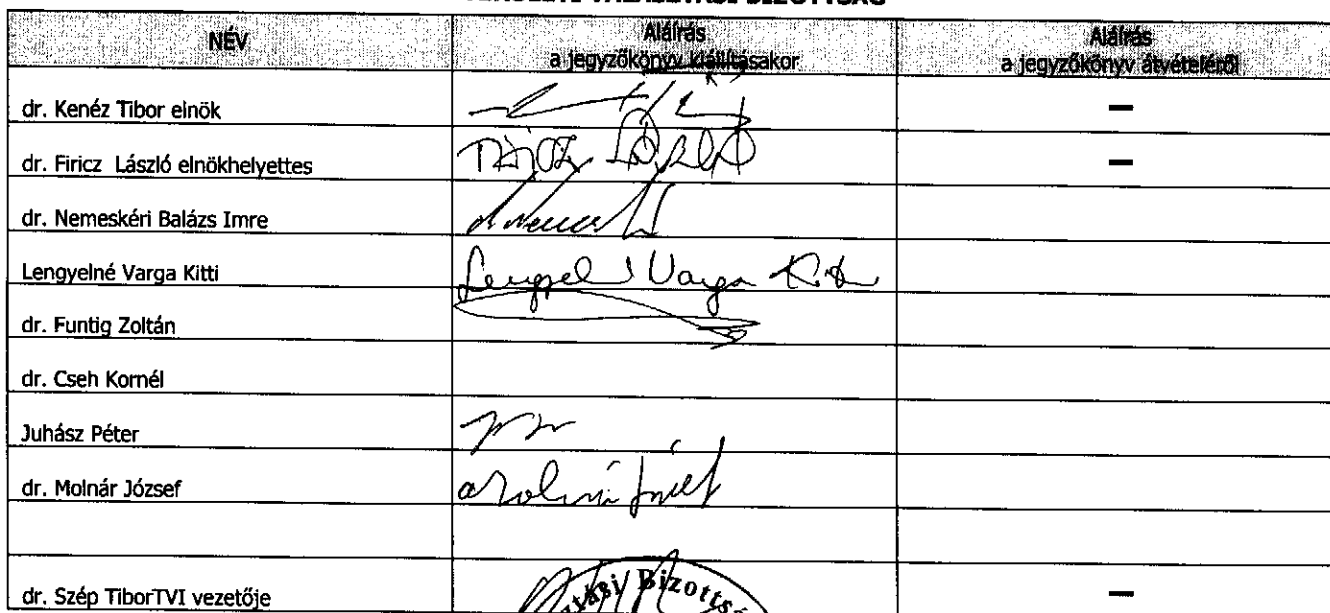 VÁLASZTÁSI BIZOTTSÁG
NÉV
Aláírás
a jegyzőkönyv kiállításakor
Aláírás
a jegyzőkönyv átvételéről
dr. Kenéz Tibor elnök
–
dr. Firicz László elnökhelyettes
–
dr. Nemeskéri Balázs Imre
Lengyelné Varga Kitti
Lengyel Varga Kitti
dr. Funtig Zoltán
dr. Cseh Kornél
Juhász Péter
dr. Molnár József
dr. Szép TiborTVI vezetője
–